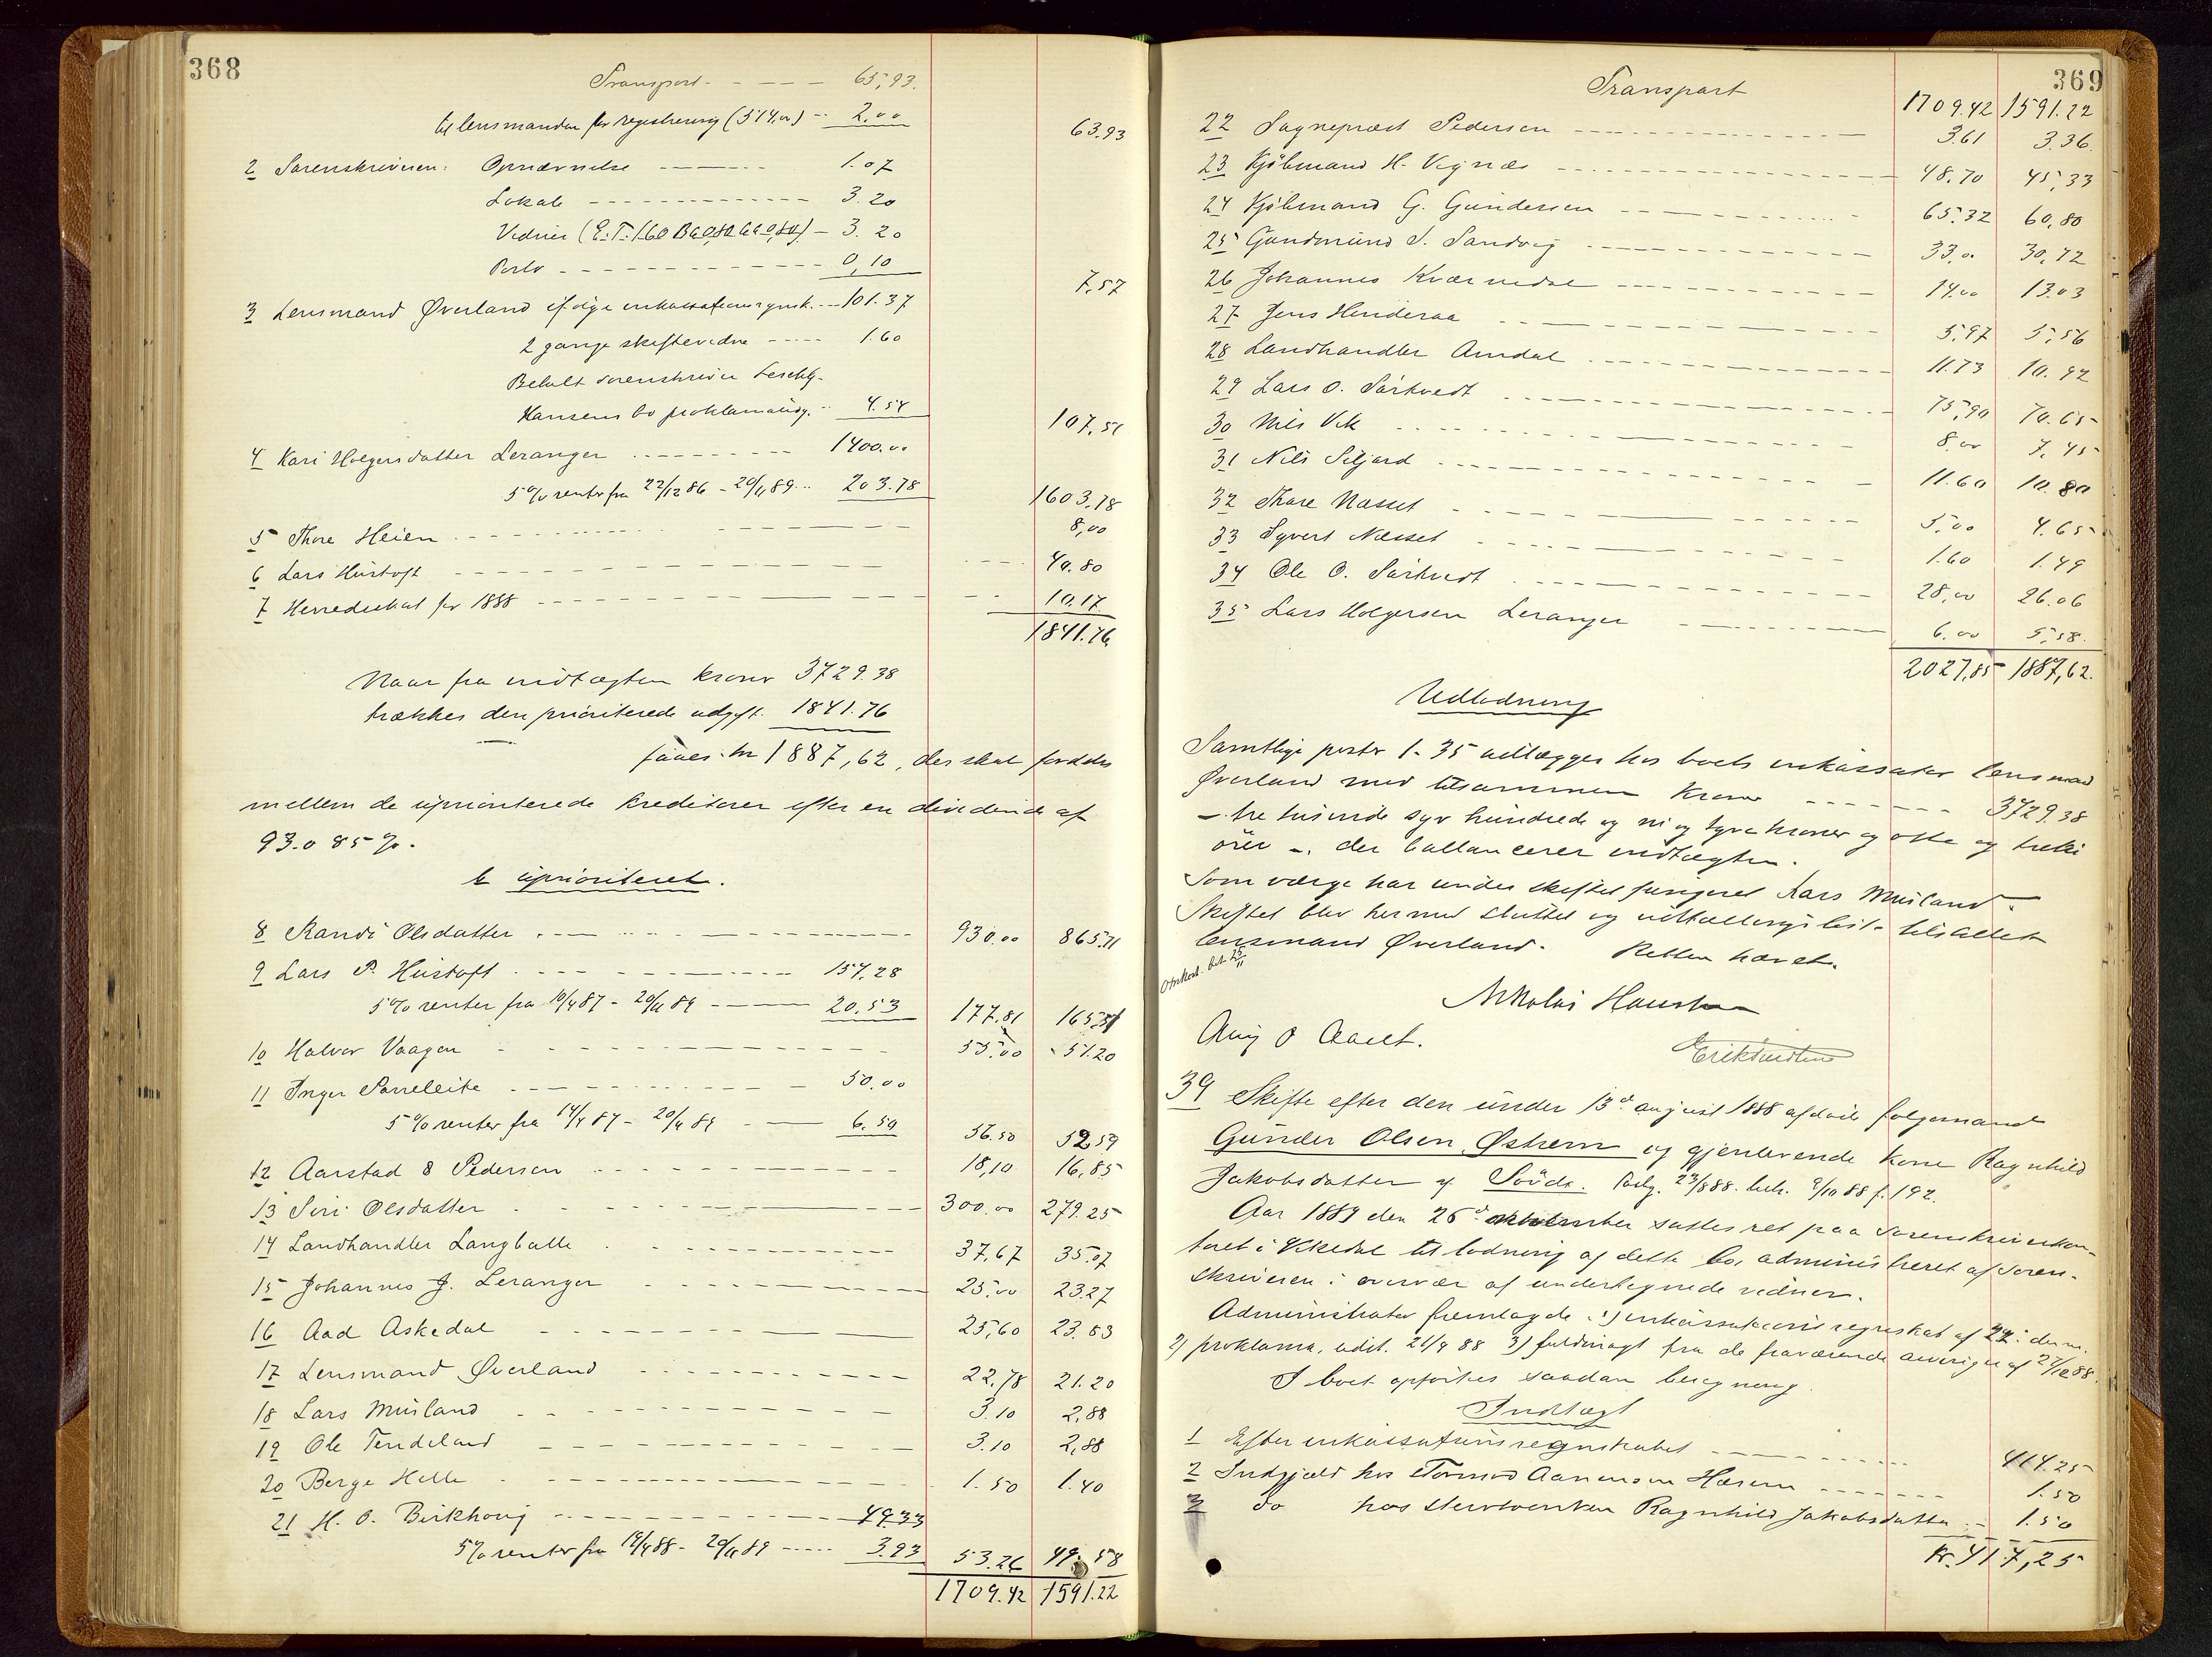 368
Transport - - - - 65,93.
til lensmanden for registrering (514,00) - 2.00 63.93
2 Sorenskriveren: Opnævnelse - - - 1.07
Lokale - - - 3.20
Vidner - 3.20
Porto - - - 0,10 7,57
3 Lensmand Øverland ifølge inkassationsregnsk. - 101.37
2 gange skiftevidne - - - 1.60
Betalt sorenskriver
Hansens bo proklamaudg. - 4.54 107,51
4 Kari Holgersdatter Leranger - - - 1400.00
5 % renter fra 22/12 86 - 20/11 89 - 203.78 1603,78
5 Thore Heien - - - 8,00
6 Lars Hustoft - - - 40.80
7 Herredsskat for 1888 - - - 10.17
1841.76
Naar fra indtægten kroner 3729.38
trækkes den prioriterede udgift. 1841.76
faaes kr 1887,62, der skal fordeles
mellem de uprioriterede kreditorer efter en dividende af
93.085 %.
b uprioriteret.
8 Randi Olsdatter - - - 930.00 865.71
9 Lars P. Hustoft - - - 157,28
5 % renter fra 10/4 87 - 20/11 89 - 20.53 177.81 165.51
10 Halvor Vaagen - - - 55.00 51.20
11 Inger Sørreleite - - - 50.00
5 % renter fra 14/4 87 - 20/11 89 - 6.50 56.50 52,59
12 Aarstad & Pedersen - - - 18,10 16,85
13 Siri Olsdatter - - - 300.00 279.25
14 Landhandler Langballe - - - 37,67 35.07
15 Johannes J. Leranger - - - 25,00 23.27
16 Aad Askedal - - - 25,60 23.83
17 Lensmand Øverland - - - 22,78 21.20
18 Lars Musland - - - 3.10 2,88
19 Ole Tendeland - - - 3.10 2,88
20 Berge Helle - - - 1.50 1.40
21 H. O. Birkhoug - - - 49.33
5 % renter fra 19/4 88 - 20/11 89 - 3.93 53.26 49.58
1709.42 1591.22
369
Transport 1709.42 1591.22
22 Sognepræst Pedersen - - - 3.61 3.36
23 Kjøbmand H. Vignæs - - - 48.70 45,33
24 Kjøbmand G. Gundersen - - - 65.32 60,80
25 Gundmund S. Sandvig - - - 33,00 30,72
26 Johannes Kværnedal - - - 14.00 13.03
27 Jens Hinderaa - - - 5.97 5,56
28 Landhandler Amdal - - - 11.73 10.92
29 Lars O. Sørtvedt - - - 75,90 70.65
30 Nils Vik - - - 8,00 7,45
31 Nils Siljord - - - 11.60 10.80
32 Thore Næsset - - - 5,00 4.65
33 Syvert Næsset - - - 1.60 1.49
34 Ole O. Sørtvedt - - - 28,00 26.06
35 Lars Holgersen Leranger - - - 6.00 5,58.
2027,85 1887,62.
Udlodning
Samtlige poster 1-35 udlægges hos boets inkassator lensmand
Øverland med tilsammen kroner - - - 3729.38
- tre tusinde syv hundrede og ni og tyve kroner og otte og tretti
ører -, der ballancerer indtægten.
Som værge har under skiftet fungeret Lars Musland.
Skiftet blev hermed sluttet og udtællingslist tilstillet
lensmand Øverland. Retten hævet.
Omkost. bet. 25/11
Nikolai Hansen
Aug O
39 Skifte efter den under 13d august 1888 afdøde følgemand
Gunder Olsen Østrem og gjenlevende kone Ragnhild
Jakobsdatter y. Søvde. 23/8 88. beh. 9/10 88 f. 192.
Aar 1889 den 26d november sattes ret paa Sorenskriverkon-
toret i Vikedal til lodning af dette bo, administreret af soren-
skriveren i overvær af undertegnede vidner.
Administrator fremlagde: 1) inkassationsregnskab af 22. dennes.
2) proklama, udst. 21/9 88 3) fuldmagt fra de fraværende arvinger af 27/12 88.
I boet opføres saadan beregning.
Indtægt
1 Efter inkassationsregnskabet - - - 414.25
2 Indgjæld hos Tormod Aanensen - - - 1.50
3 do hos Sterboenken Ragnhild Jakobsdatter - 1.50
Kr. 417,25